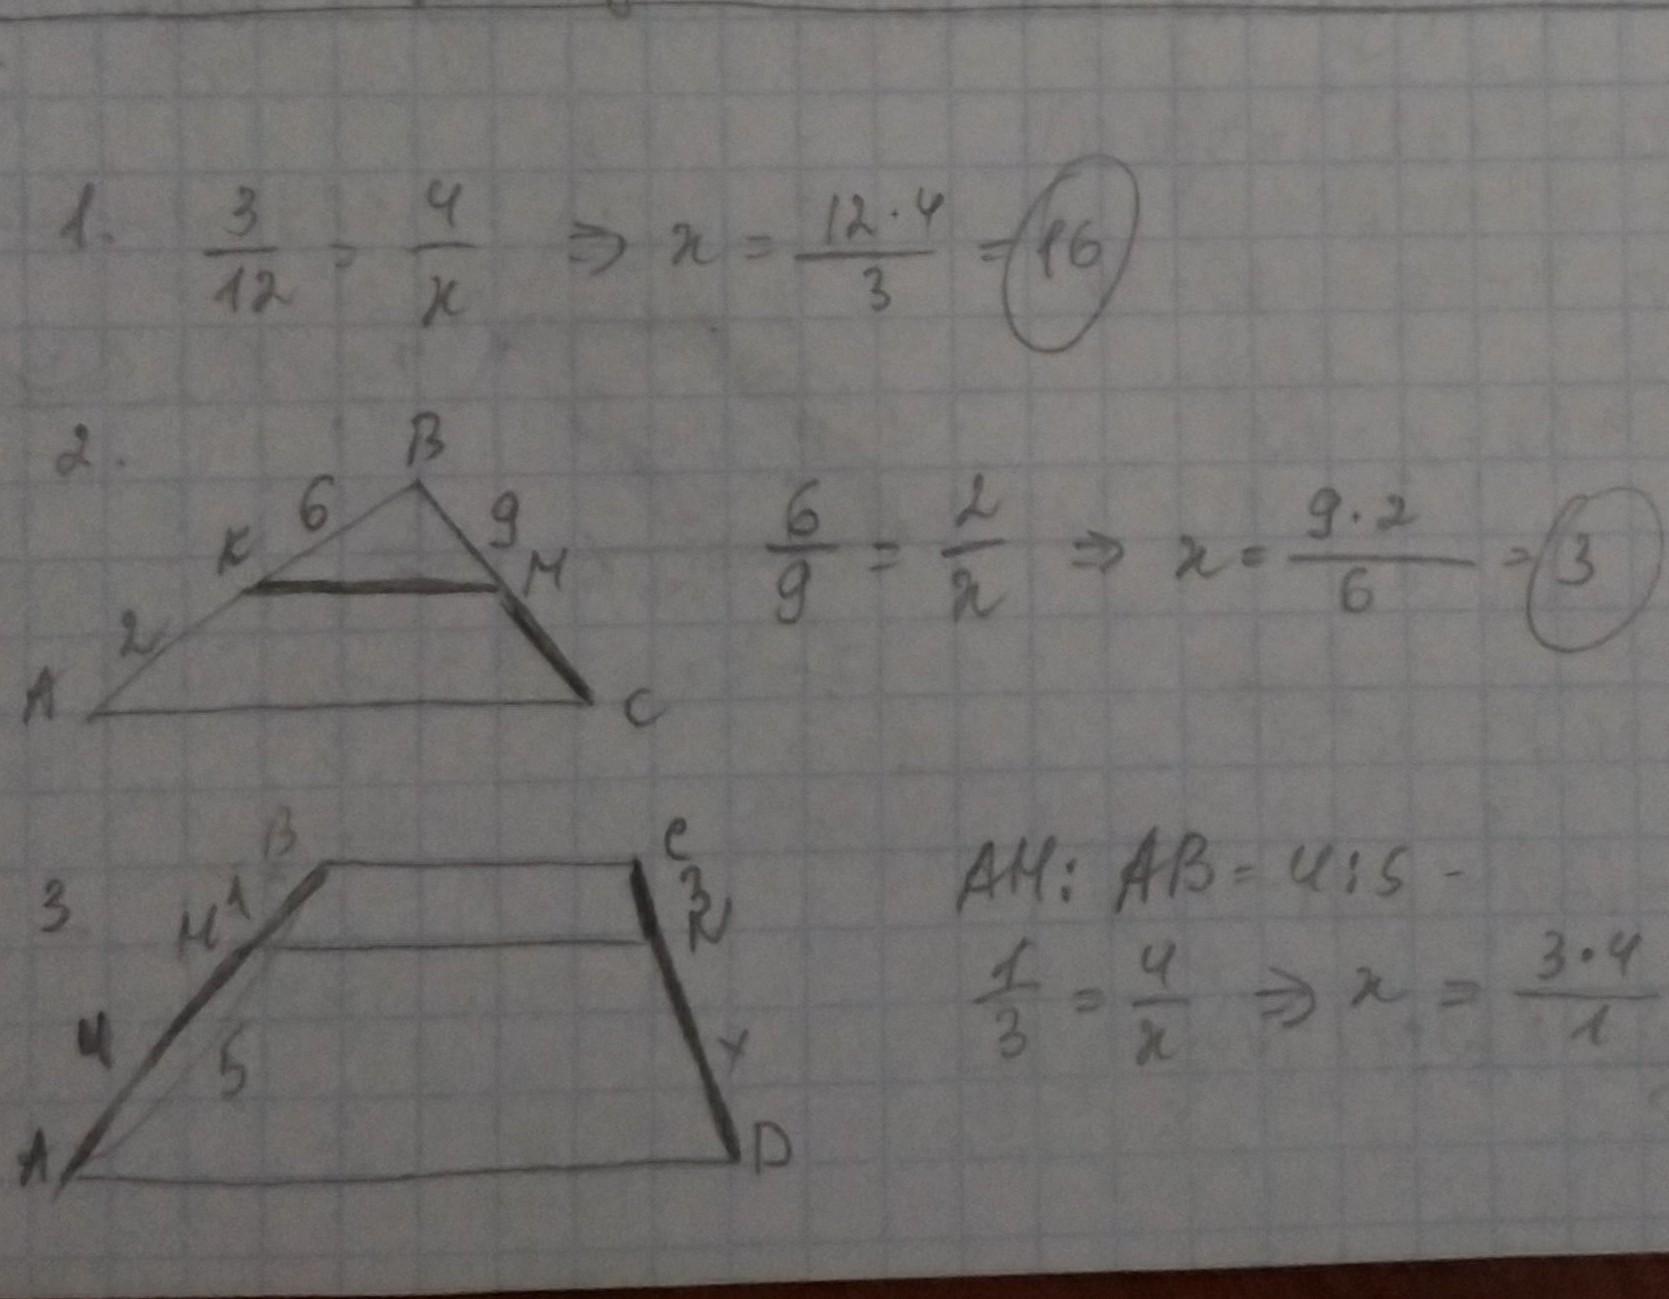 1. 3/12 = 4/x ⇒ x = 12·4/3 = 16
2.
B
6 9
K M
2
A C
6/9 = 2/x ⇒ x = 9·2/6 = 3
3
B C
M 1 3 N
4 5 x
A D
AM : AB = 4:5 -
1/3 = 4/x ⇒ x = 3·4/1